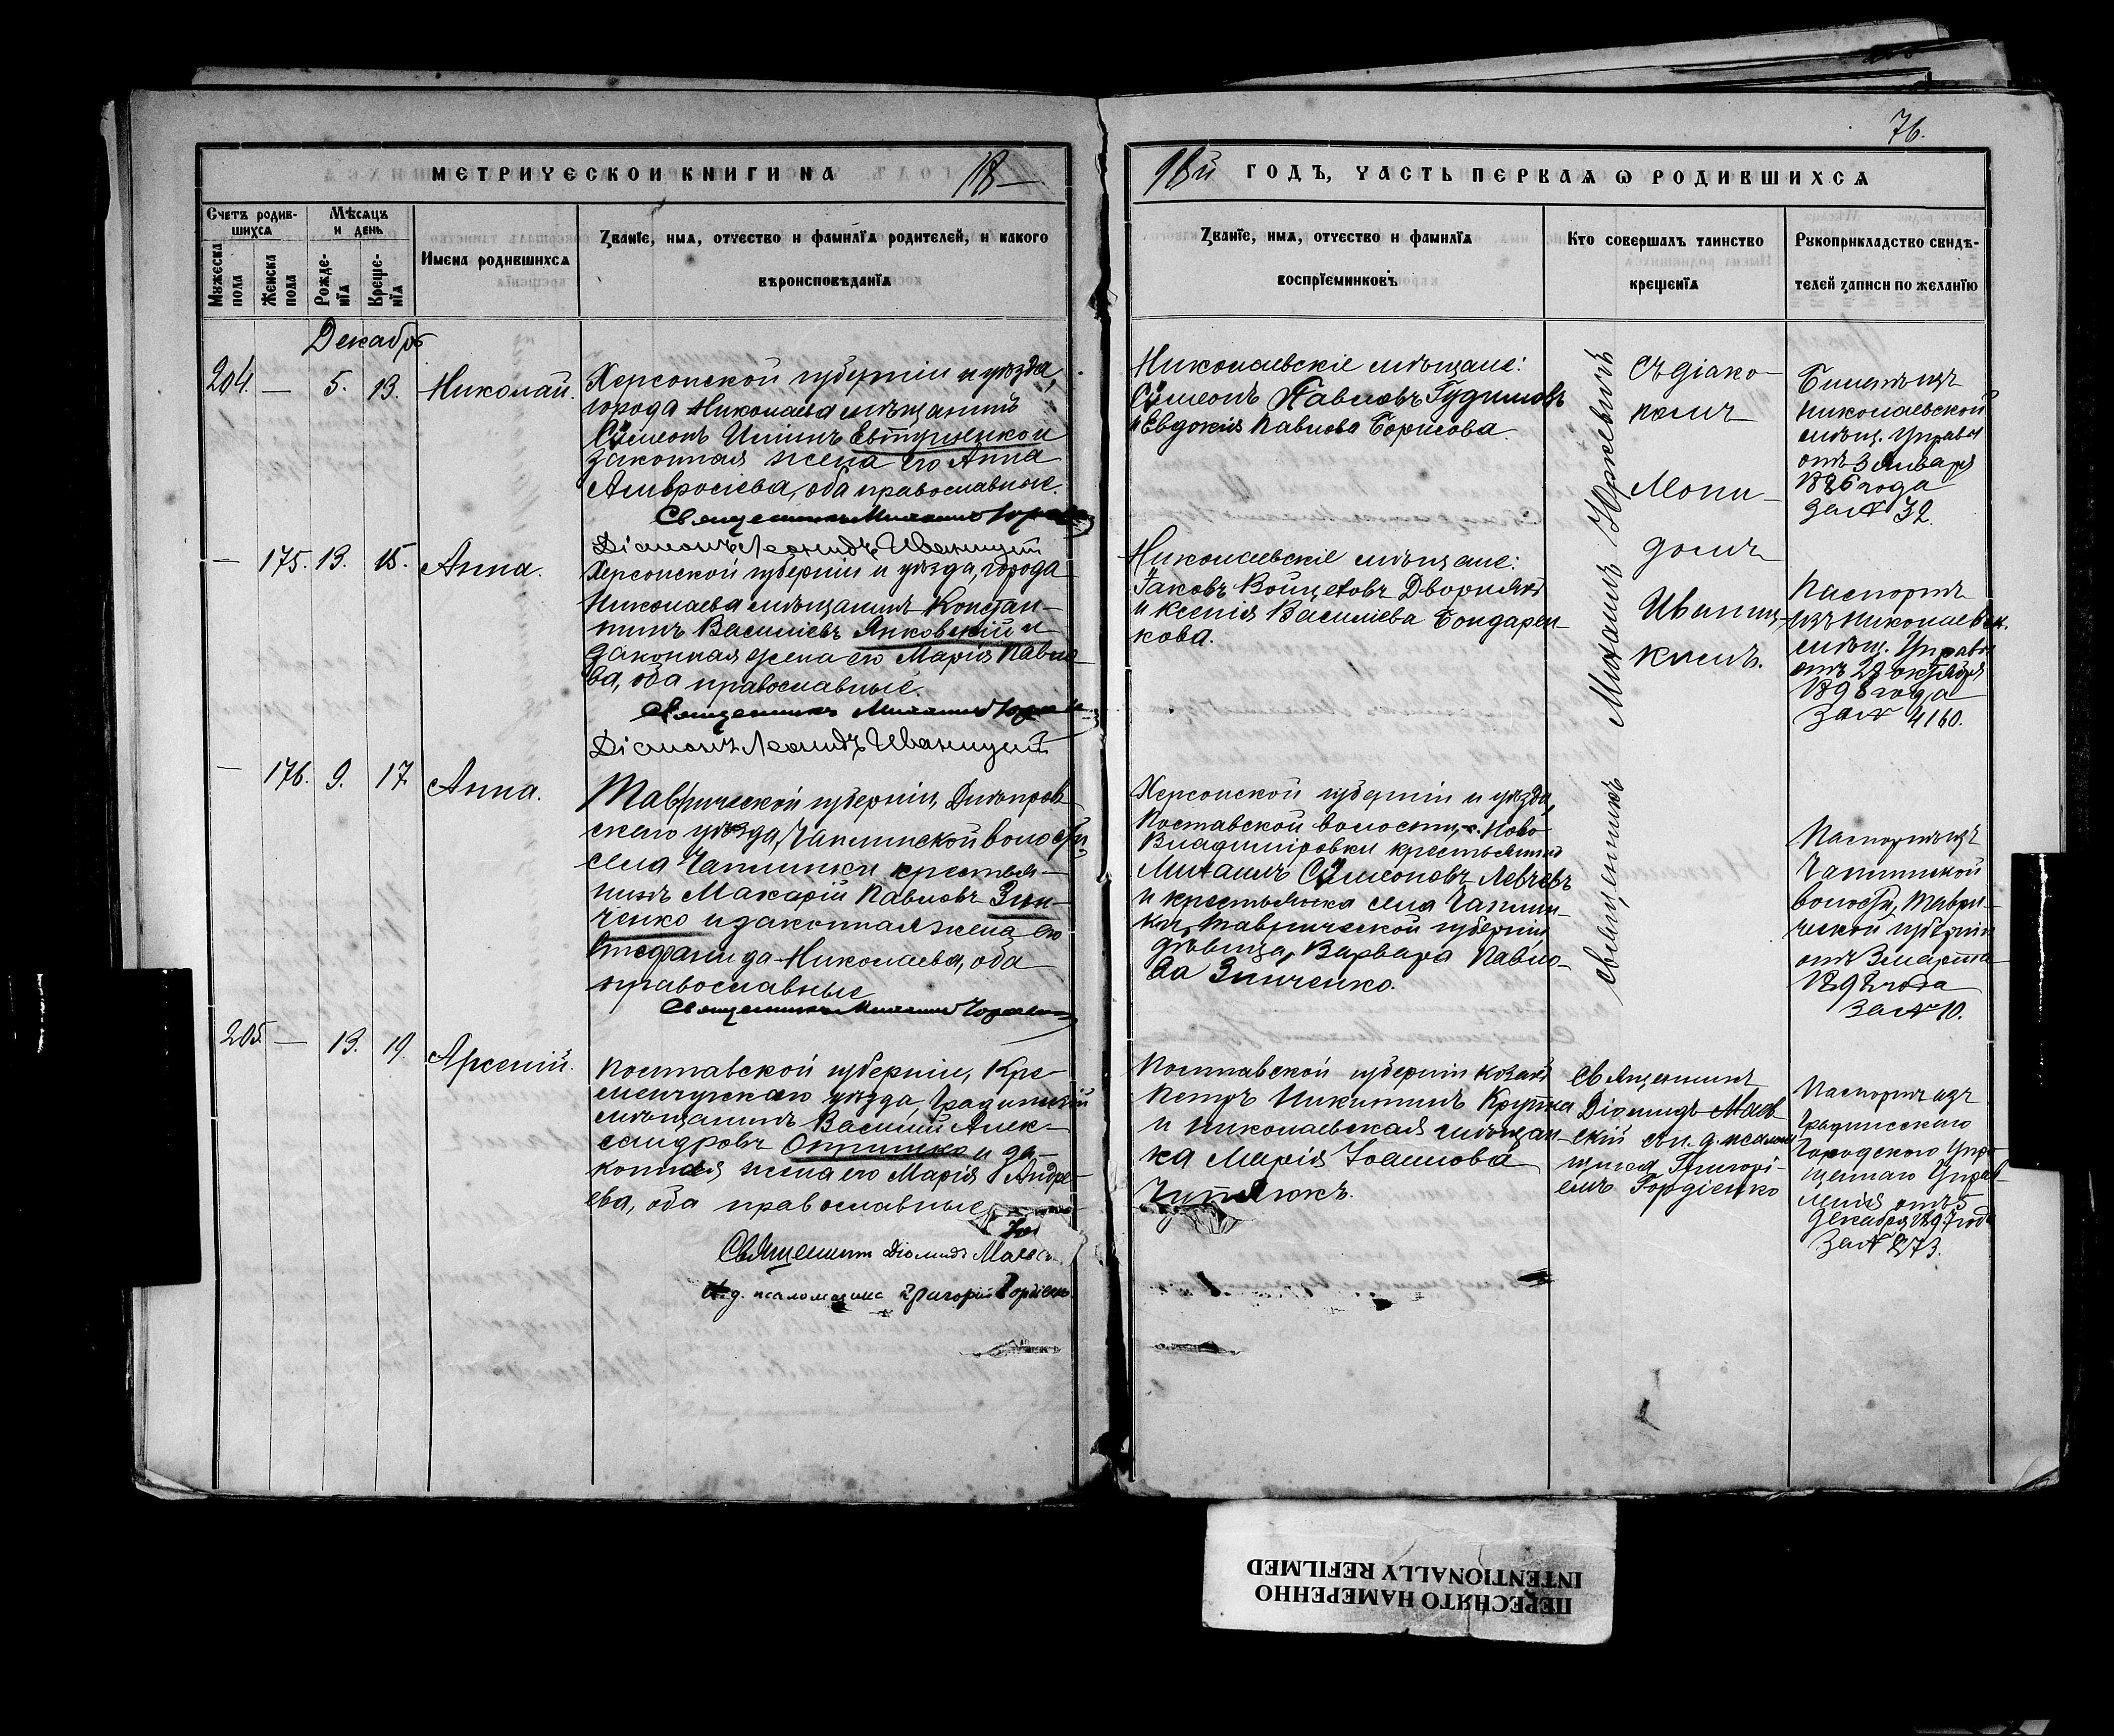 76.
МЕТРИЧЕСКОЙ КНИГИ НА 18—
98й ГОДЪ, ЧАСТЬ ПЕРВАЯ Ѡ РОДИВШИХСЯ
Счетъ родив-
шихся
Мѣсяцъ
и день
Мужеска
пола
Женска
пола
Рожде-
нія
Креще-
нія
Имена родившихся
Званіе, имя, отчество и фамилія родителей, и какого
вѣроисповѣданія
Званіе, имя, отчество и фамилія
воспріемниковъ
Кто совершалъ таинство
крещенія
Рукоприкладство свидѣ-
телей записи по желанію
Декабрь
204. — 5. 13. Николай.
Херсонской губерніи и уѣзда,
города Николаева мѣщанинъ
Сѵмеонъ Иліинъ Евтушенко и
законная жена его Анна
Амвросіева, оба православные.
Священникъ Михаилъ Юркевичъ
Діаконъ Леонидъ Иваницкій
Николаевскіе мѣщане:
Сѵмеонъ Павловъ Гудимовъ
и Евдокія Павлова Борисова.
Священникъ Михаилъ Юркевичъ
съ діако-
номъ
Леони-
домъ
Иваниц-
кимъ.
Билетъ изъ
Николаевской
мѣщ. Управы
отъ 3 Января
1886 года
за № 32.
— 175. 13. 15. Анна.
Херсонской губерніи и уѣзда, города
Николаева мѣщанинъ Констан-
тинъ Василіевъ Янковскій и
законная жена его Марія Павло-
ва, оба православные.
Священникъ Михаилъ Юркевичъ
Діаконъ Леонидъ Иваницкій
Николаевскіе мѣщане:
Іаковъ Войцеховъ Дворнякъ
и Ксенія Василіева Бондарен-
кова.
Паспортъ
изъ Николаевск.
мѣщ. Управы
отъ 28 октября
1898 года
за № 4160.
— 176. 9. 17. Анна.
Таврической губерніи, Днѣпров-
скаго уѣзда, Чаплинской волости,
села Чаплинки крестья-
нинъ Макарій Павловъ Зин-
ченко и законная жена его
Стефанида Николаева, оба
православные
Священникъ Михаилъ Юркевичъ
Херсонской губерніи и уѣзда,
Полтавской волости, с. Ново-
Владиміровки крестьянинъ
Михаилъ Сѵмеоновъ Левчевъ
и крестьянка села Чаплин-
ки, Таврической губерніи
дѣвица, Варвара Павло-
ва Зинченко.
Паспортъ изъ
Чаплинской
волости, Таври-
ческой губерніи
отъ 3 марта
1898 года
за № 10.
205. — 13. 19. Арсеній.
Полтавской губерніи, Кре-
менчугскаго уѣзда, Градижскій
мѣщанинъ Василій Алек-
сандровъ Отришко и за-
конная жена его Марія Андре-
ева, оба православные
Священникъ Діомидъ Маев
И. д. псаломщика Григорій Гордіенко
Полтавской губерніи козакъ
Петръ Никитинъ Крутка
и Николаевская мѣщан-
ка Марія Іоаннова
Чуплюкъ.
Священникъ
Діомидъ Маев-
скій съ и. д. псалом-
щика Григорі-
емъ Гордіенко
Паспортъ изъ
Градижскаго
Городского Упро-
щеннаго Управ-
ленія отъ 5
декабря 1897 года
за № 273.
ПЕРЕСНЯТО НАМЕРЕННО
INTENTIONALLY REFILMED